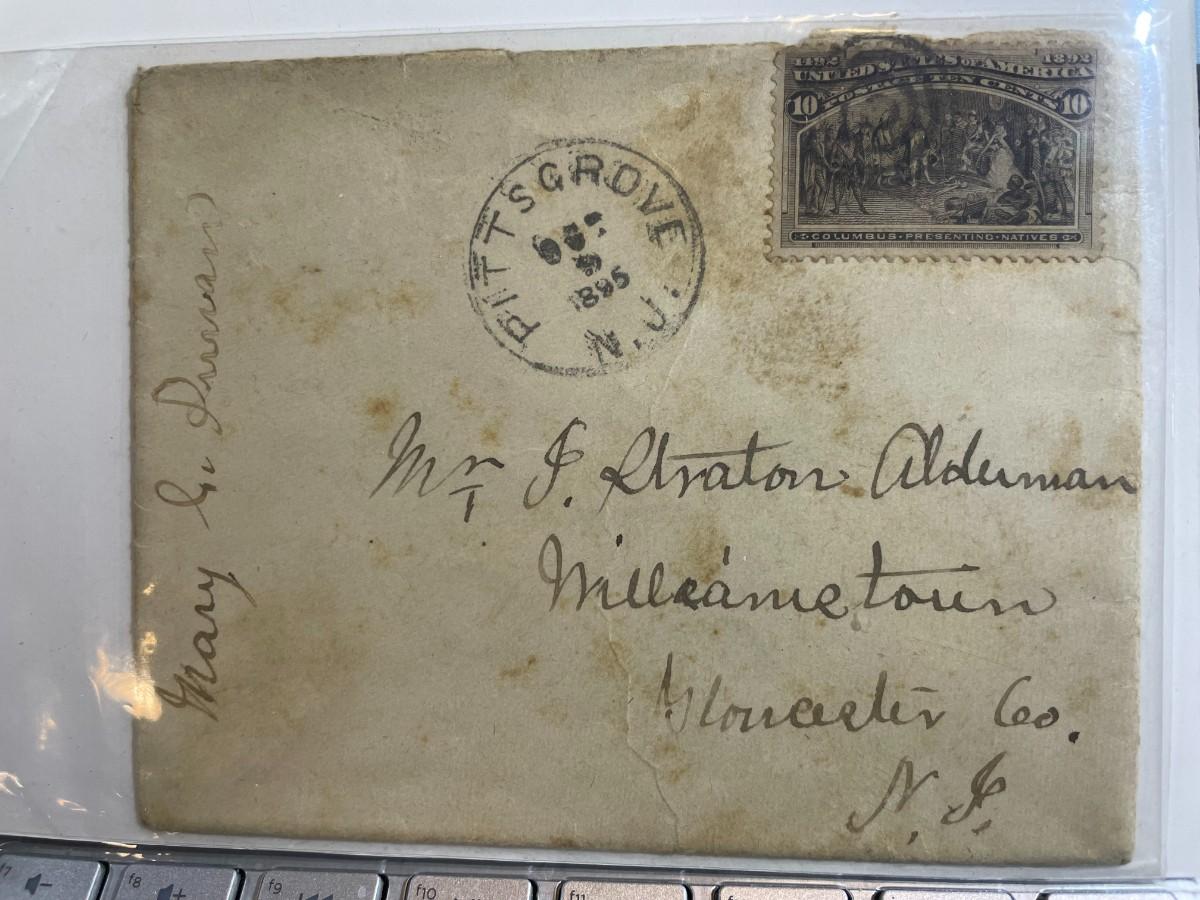 1492 1892
UNITED STATES OF AMERICA
POSTAGE TEN CENTS
10 10
COLUMBUS PRESENTING NATIVES
PITTSGROVE N.J.
9
1895
Mary G.
Mr J. Straton Alderman
Williamstown
Gloucester Co.
N. J.
f7
f8
f9
f10
f11